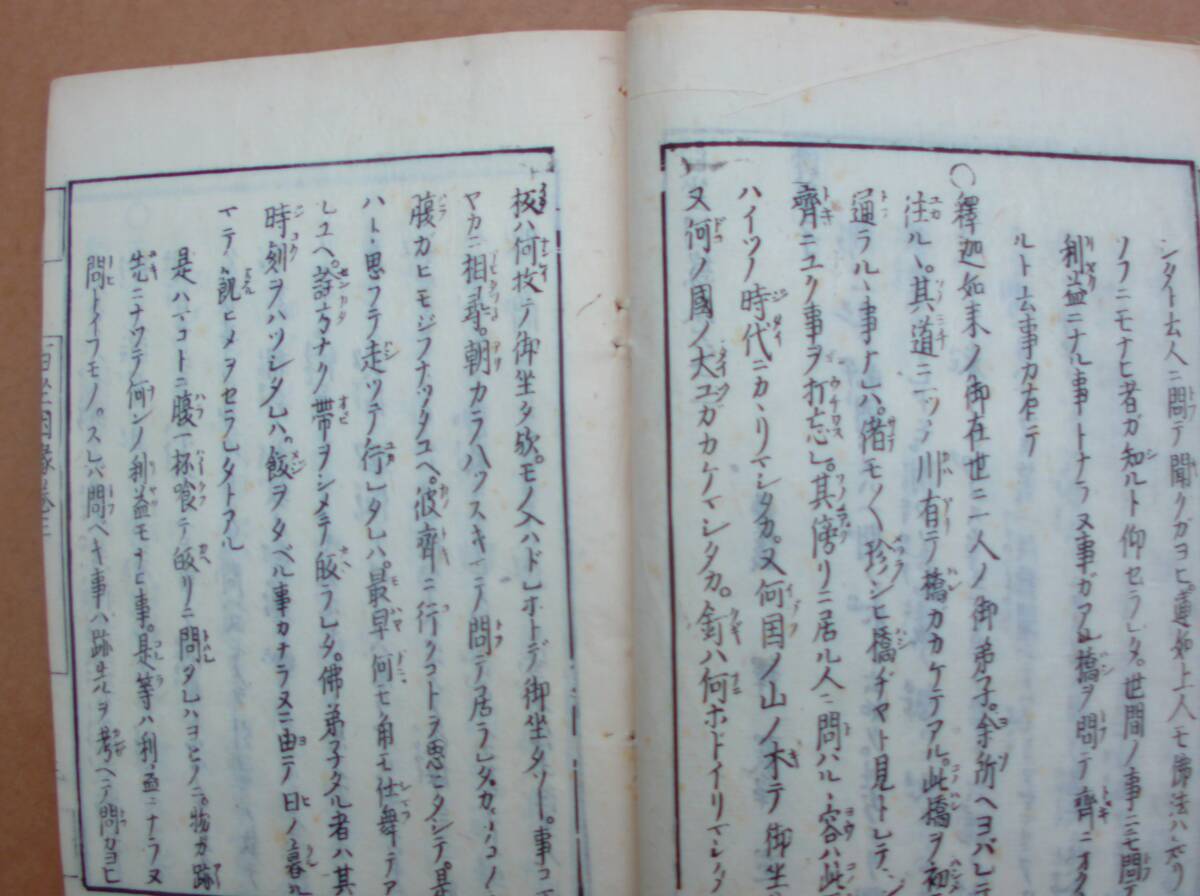 シタト云人ニ問テ聞クガヨヒ蓮如上人モ佛法ハ
ソフニモナヒ者ガ知ルト仰セラレタ。世間ノ事ニモ問
利益ニナル事トナラヌ事ガアル橋ヲ問テ齊ニオク
ルト云事カ有テ
○釋迦如来ノ御在世ニ一人ノ御弟子。余所ヘヨバレテ
往ル丶。其道ニ一ツノ川有テ橋カカケテアル。此橋ヲ初
通ラル丶事ナレハ。偖モ〱珍シヒ橋ヂヤト見トレテ
齊ニユク事ヲ打忘レ。其傍リニ居ル人ニ問ハル丶容ハ此
ハイツノ時代ニカ丶リマシタカ。又何国ノ山ノ木テ御坐
又何ノ國ノ大工ガカケマシタカ。釘ハ何ホドイリマシタ
板ハ何枚テ御坐タ欤。モノ入ハドレホトデ御坐タゾ。事コ
マカニ相尋。朝カラハツスキマテ問テ居ラレタ。カ
腹カヒモジフナツタユヘ。彼齊ニ行クコトヲ思ヒタシテ。是
ハト思フテ走ツテ行レタレハ。最早何モ角モ仕舞テア
レユヘ。詮方ナク帯ヲシメテ皈ラレタ。佛弟子タル者ハ其
時刻ヲハツシタレハ。飯ヲタベル事カナラヌニ由テ日ノ暮ル
マテ飢ヒメヲセラレタトアル
是ハマコトニ腹一杯喰テ皈リニ問タレハヨヒノニ。物カ跡
先ニナツテ何ンノ利益モナヒ事。是等ハ利益ニナラヌ
問トイフモノ。スレハ問ベキ事ハ跡先ヲ考ヘテ問カヨヒ
因縁巻三